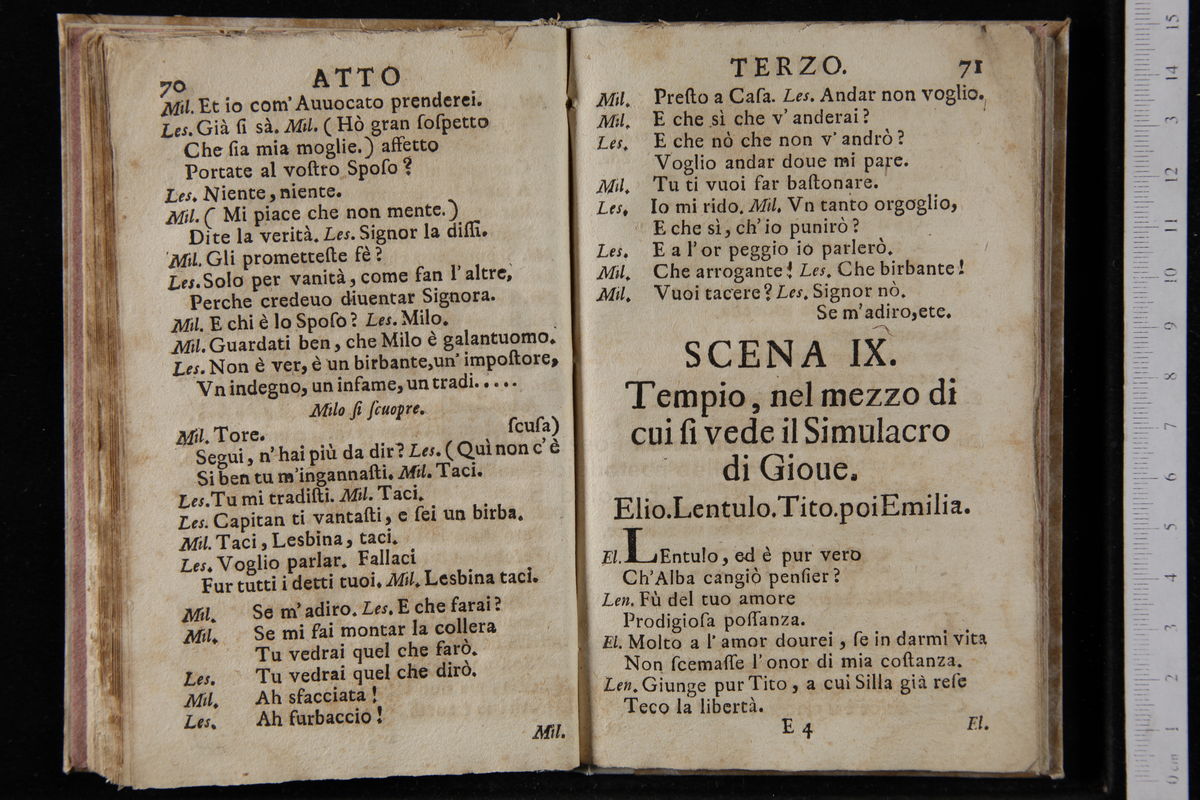 70 ATTO
Mil. Et io com' Auuocato prenderei.
Les. Già ſi sà. Mil. ( Hò gran ſoſpetto
Che ſia mia moglie. ) affetto
Portate al voſtro Spoſo ?
Les. Niente , niente.
Mil. ( Mi piace che non mente. )
Dite la verità. Les. Signor la diſſi.
Mil. Gli prometteſte fè ?
Les. Solo per vanità , come fan l' altre,
Perche credeuo diuentar Signora.
Mil. E chi è lo Spoſo ? Les. Milo.
Mil. Guardati ben , che Milo è galantuomo.
Les. Non è ver, è un birbante,un' impoſtore,
Vn indegno, un infame, un tradi.....
Milo ſi ſcuopre.
Mil. Tore. ſcuſa)
Segui, n' hai più da dir ? Les. ( Quì non c' è
Si ben tu m'ingannaſti. Mil. Taci.
Les. Tu mi tradiſti. Mil. Taci.
Les. Capitan ti vantaſti, e ſei un birba.
Mil. Taci , Lesbina , taci.
Les. Voglio parlar. Fallaci
Fur tutti i detti tuoi. Mil. Lesbina taci.
Mil. Se m' adiro. Les. E che farai ?
Mil. Se mi fai montar la collera
Tu vedrai quel che farò.
Les. Tu vedrai quel che dirò.
Mil. Ah sfacciata !
Les. Ah furbaccio !
Mil.
TERZO. 71
Mil. Preſto a Caſa. Les. Andar non voglio.
Mil. E che sì che v' anderai ?
Les. E che nò che non v' andrò ?
Voglio andar doue mi pare.
Mil. Tu ti vuoi far baſtonare.
Les. Io mi rido. Mil. Vn tanto orgoglio,
E che sì , ch' io punirò ?
Les. E a l' or peggio io parlerò.
Mil. Che arrogante ! Les. Che birbante !
Mil. Vuoi tacere ? Les. Signor nò.
Se m' adiro,etc.
SCENA IX.
Tempio, nel mezzo di
cui ſi vede il Simulacro
di Gioue.
Elio.Lentulo.Tito.poi Emilia.
El. LEntulo, ed è pur vero
Ch' Alba cangiò penſier ?
Len. Fù del tuo amore
Prodigioſa poſſanza.
El. Molto a l' amor dourei , ſe in darmi vita
Non ſcemaſſe l' onor di mia coſtanza.
Len. Giunge pur Tito , a cui Silla già reſe
Teco la libertà.
E 4 El.
15
14
13
12
11
10
9
8
7
6
5
4
3
2
1
0 cm